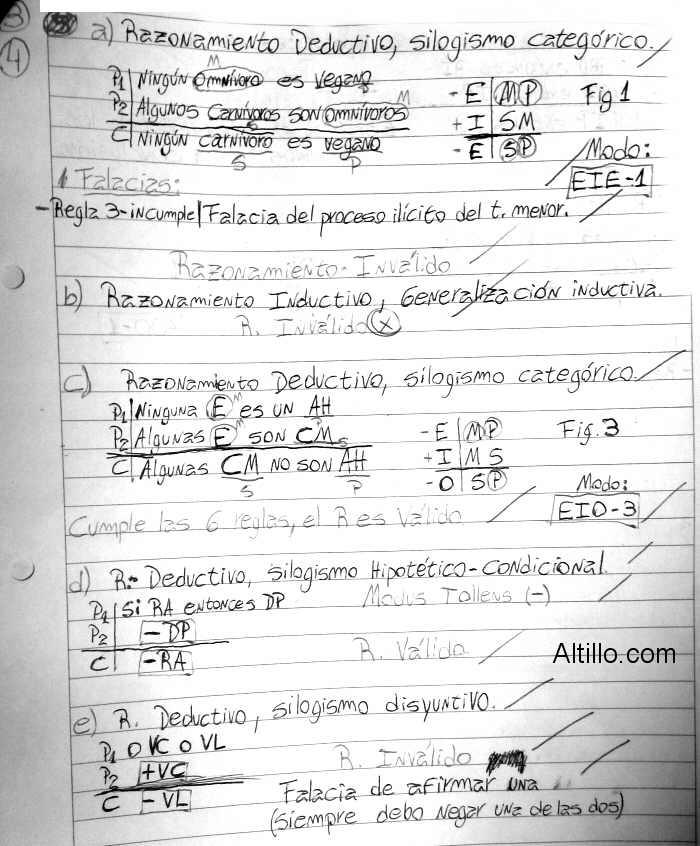 3
4
a) Razonamiento Deductivo, silogismo categórico.
M
P1 Ningún omnívoro es vegano
P
P2 Algunos carnívoros son omnívoros M
S
C Ningún carnívoro es vegano
S P
- E MP Fig 1
+ I SM
- E SP Modo:
EIE-1
1 Falacias:
- Regla 3-incumple / Falacia del proceso ilícito del t. menor.
Razonamiento-Inválido
b) Razonamiento Inductivo, Generalización inductiva.
R. Inválido x
c) Razonamiento Deductivo, silogismo categórico.
P1 Ninguna E M es un AH
P2 Algunas E M son CM S
C Algunas CM no son AH
S P
- E MP Fig. 3
+ I MS
- O SP Modo:
EIO-3
Cumple las 6 reglas, el R es Válido
d) R. Deductivo, silogismo Hipotético-Condicional.
P1 Si RA entonces DP Modus Tollens (-)
P2 -DP
C -RA R. Válido
Altillo.com
e) R. Deductivo, silogismo disyuntivo.
P1 O VC o VL
P2 +VC R. Inválido
C -VL Falacia de afirmar una
(siempre debo negar una de las dos)